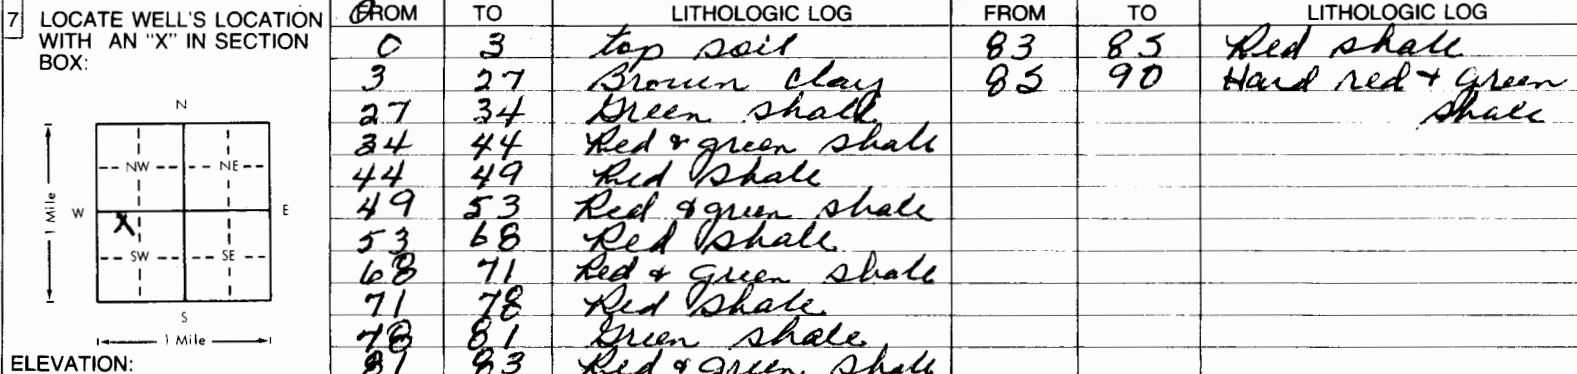 7 LOCATE WELL'S LOCATION WITH AN "X" IN SECTION BOX:
N
NW NE
W E
X
SW SE
S
1 Mile
1 Mile
ELEVATION:
FROM TO LITHOLOGIC LOG FROM TO LITHOLOGIC LOG
0 3 top soil 83 85 Red shale
3 27 Brown clay 85 90 Hard red & green
27 34 Green shale shale
34 44 Red & green shale
44 49 Red shale
49 53 Red & green shale
53 68 Red shale
68 71 Red & green shale
71 78 Red shale
78 81 Green shale
81 83 Red & green shale